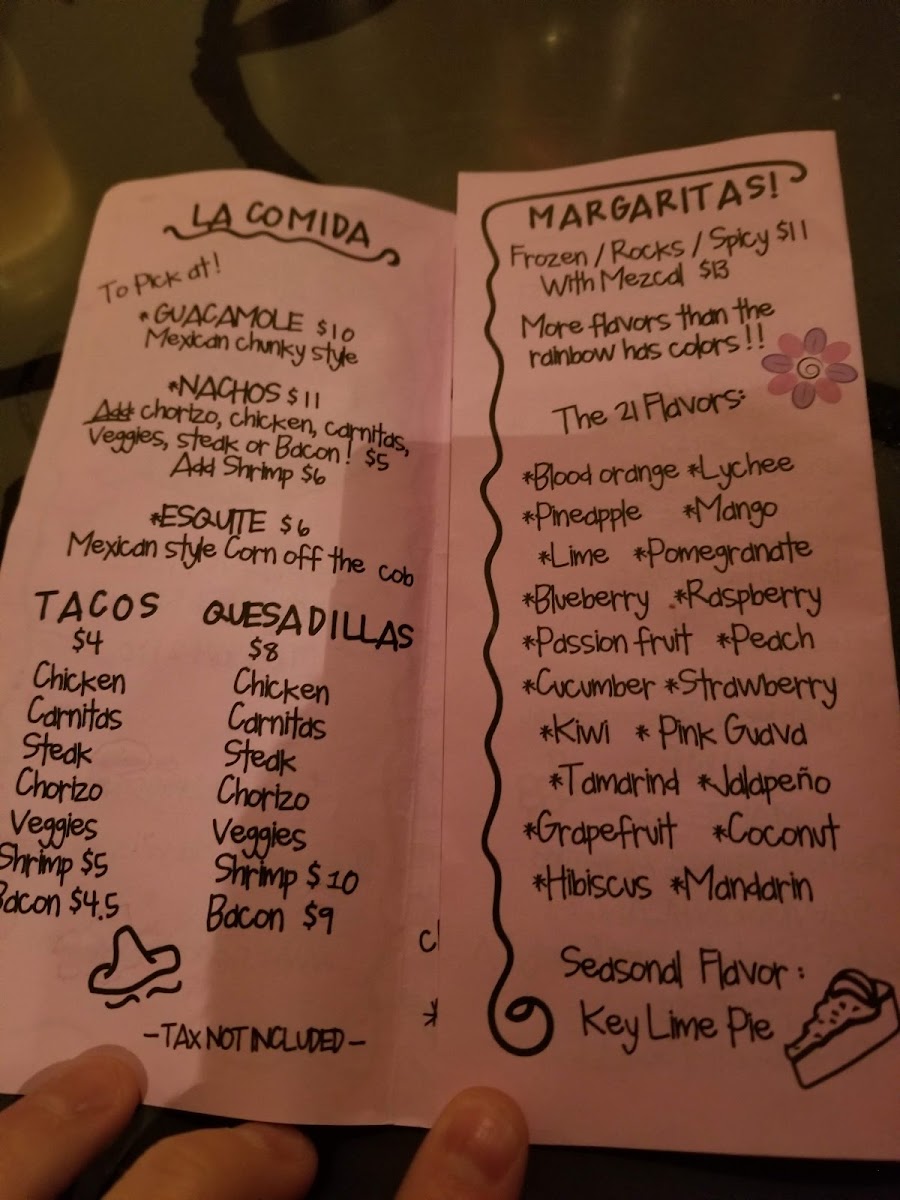 LA COMIDA
To Pick at!
*GUACAMOLE $10
Mexican chunky style
*NACHOS $11
Add chorizo, chicken, carnitas,
Veggies, steak or Bacon! $5
Add Shrimp $6
*ESQUITE $6
Mexican style Corn off the cob
TACOS
$4
Chicken
Carnitas
Steak
Chorizo
Veggies
Shrimp $5
Bacon $4.5
QUESADILLAS
$8
Chicken
Carnitas
Steak
Chorizo
Veggies
Shrimp $10
Bacon $9
-TAX NOT INCLUDED-
MARGARITAS!
Frozen / Rocks / Spicy $11
With Mezcal $13
More flavors than the
rainbow has colors!!
The 21 Flavors:
*Blood orange *Lychee
*Pineapple *Mango
*Lime *Pomegranate
*Blueberry *Raspberry
*Passion fruit *Peach
*Cucumber *Strawberry
*Kiwi *Pink Guava
*Tamarind *Jalapeño
*Grapefruit *Coconut
*Hibiscus *Mandarin
Seasonal Flavor:
Key Lime Pie